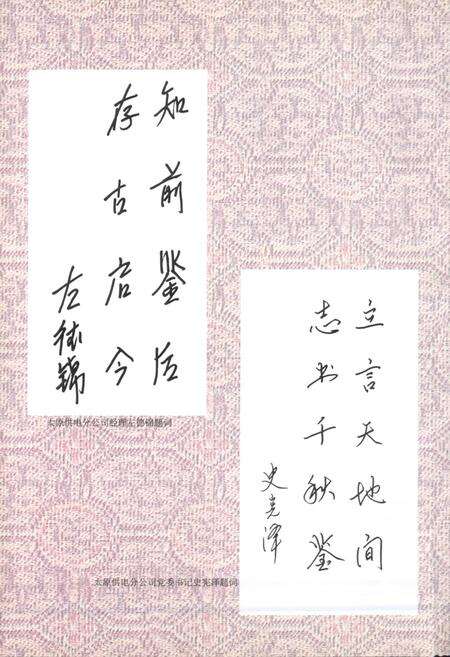 知前鉴后
存古启今
左德锦
太原供电分公司经理左德锦题词
立言天地间
志书千秋鉴
史宪泽
太原供电分公司党委书记史宪泽题词